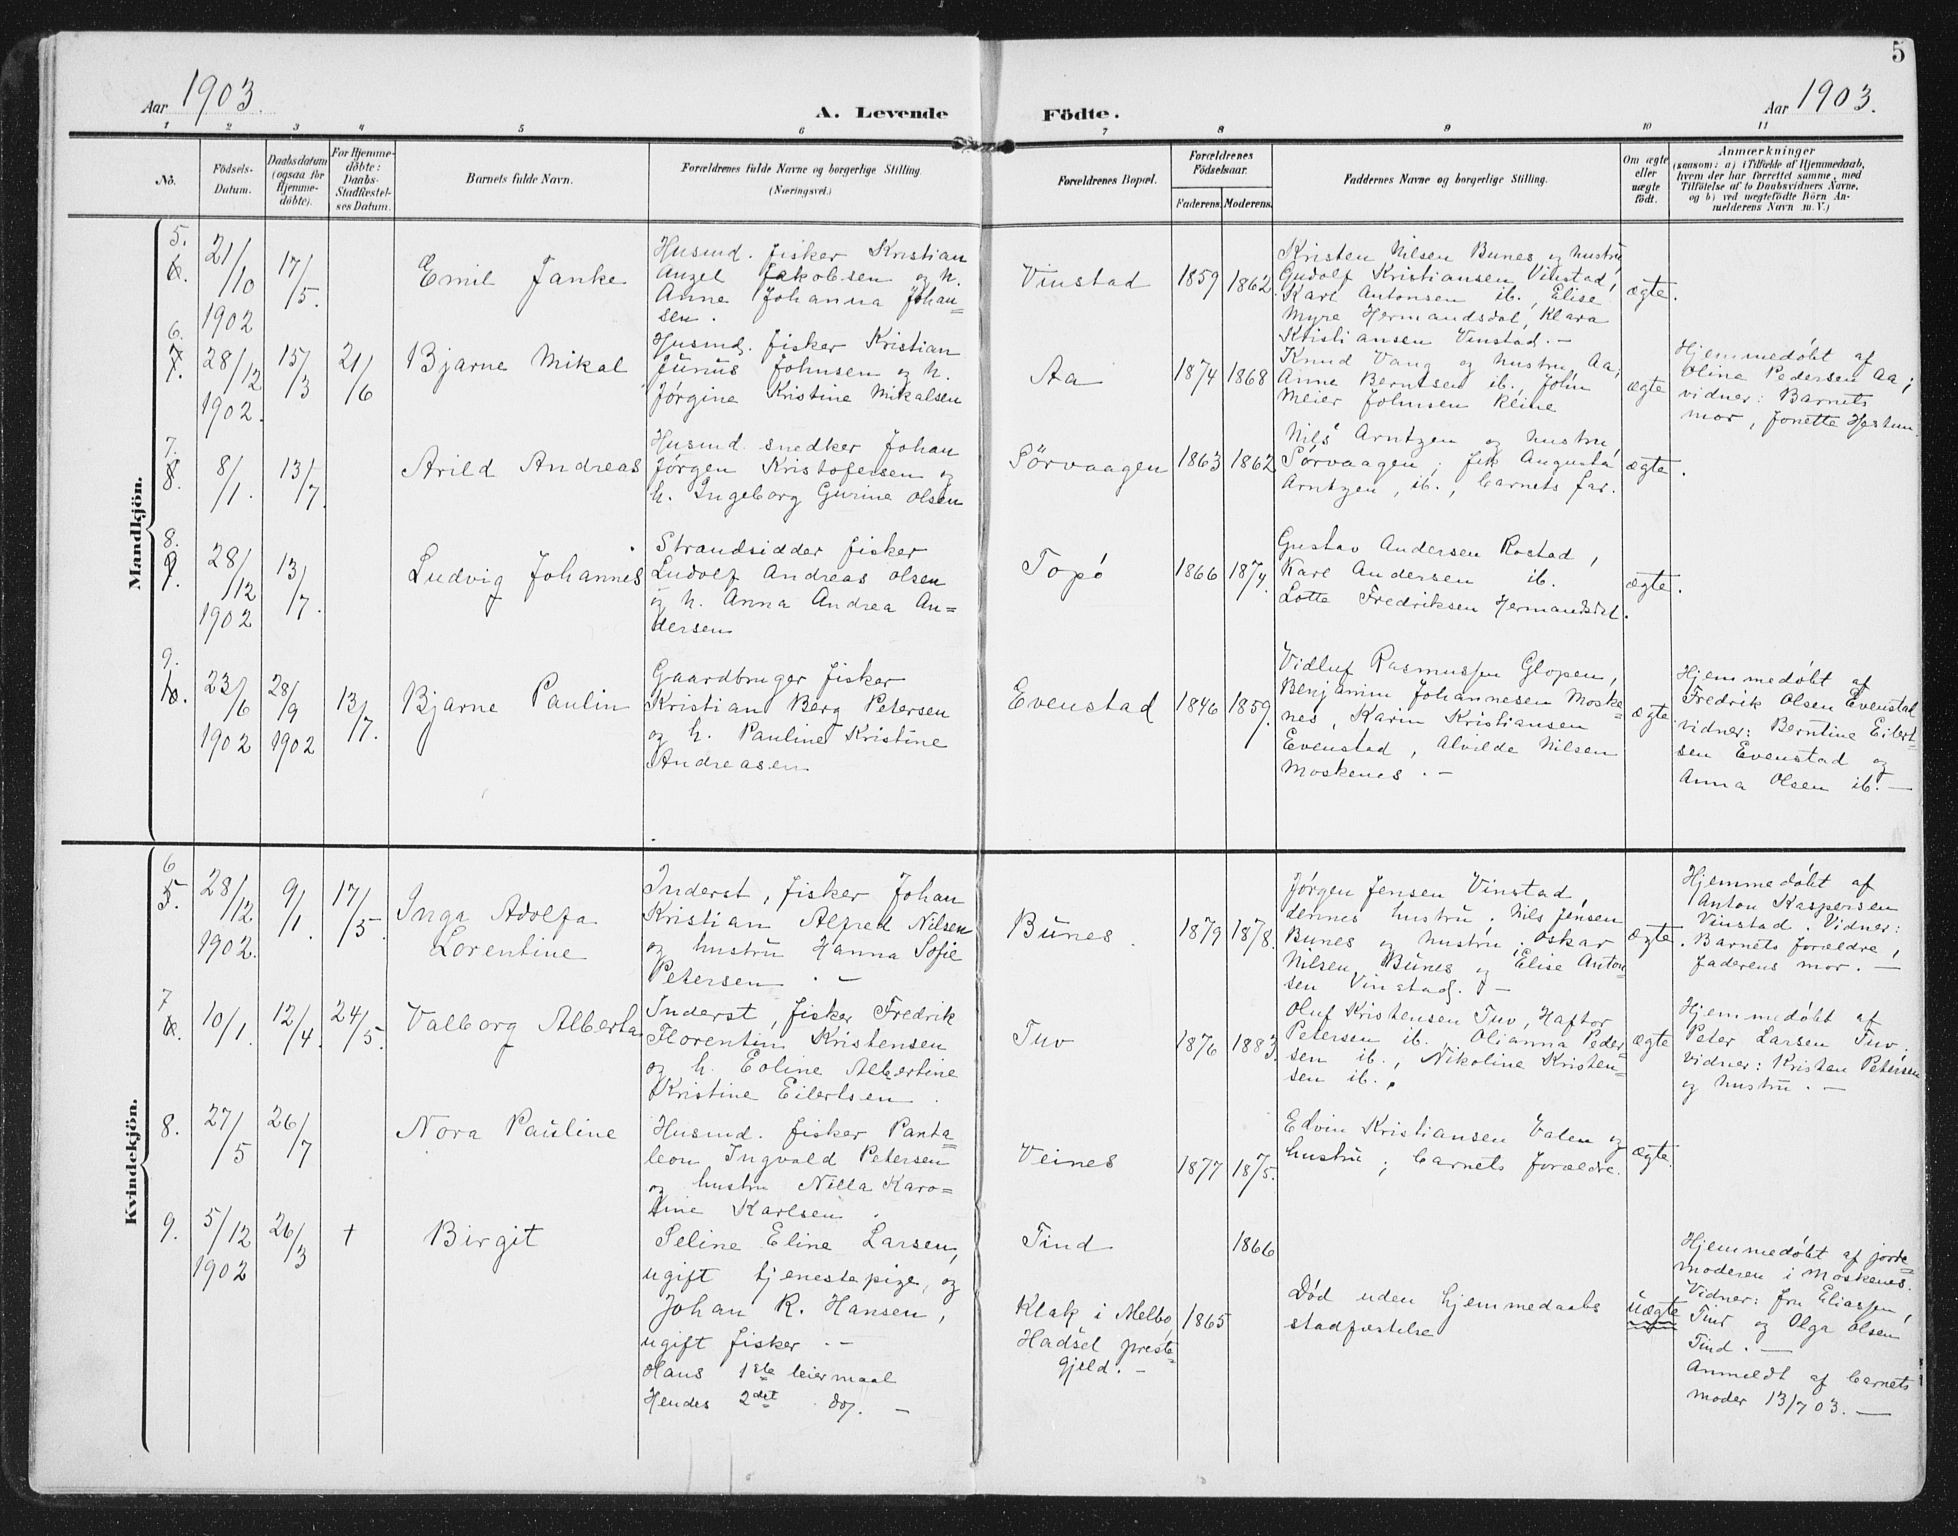 5
Aar 1903.
A. Levende Födte.
Aar 1903.
1 2 3 4 5 6 7 8 9 10 11
No.
Födsels-
Datum.
Daabsdatum
(ogsaa for
Hjemme-
döbte).
For Hjemme-
döbte:
Daabs-
Stadfæstel-
ses Datum.
Barnets fulde Navn.
Forældrenes fulde Navne og borgerlige Stilling.
(Næringsvei.)
Forældrenes Bopæl.
Forældrenes
Födselsaar.
Faderens. Moderens.
Faddernes Navne og borgerlige Stilling.
Om ægte
eller
uægte
födt.
Anmærkninger
(saasom: a) i Tilfælde af Hjemmedaab,
hvem der har forrettet samme, med
Tilföielse af to Daabsvidners Navne,
og b) ved uægtefödte Börn An-
melderens Navn m. V.)
Mandkjön.
5.
6.
21/10
1902
17/5.
Emil Janke
Husmd. fisker Kristian
Anzel Jakobsen og h.
Anne Johanna Johan=
sen.
Vinstad
1859 1862
Kristen Nilsen Bunes og hustru
Gudolf Kristiansen Vinstad,
Karl Antonsen ib., Elise
Myre Hermandsdal, Klara
Kristiansen Vinstad. -
ægte.
6.
7.
28/12
1902.
15/3
21/6
Bjarne Mikal
Husmd. fisker Kristian
Junus Johnsen og h.
Jørgine Kristine Mikalsen
Aa
1874 1868
Knud Vang og hustru Aa,
Anne Berntsen ib., John
Meier Johnsen Reine
ægte
Hjemmedøbt af
Oline Pedersen Aa;
vidner: Barnets
mor, Jonette
7.
8.
8/1.
13/7.
Arild Andreas
Husmd. snedker Johan
Jørgen Kristofersen og
h. Ingeborg Gurine Olsen
Sörvaagen
1863 1862
Nils Arntzen og hustru
Sörvaagen, frk Augusta
Arntzen, ib., barnets far.
ægte.
8.
9.
28/12
1902
13/7.
Ludvig Johannes
Strandsidder fisker
Ludolf Andreas Olsen
og h. Anna Andrea An=
dersen
Topö
1866 1874.
Gustav Andersen Rostad,
Karl Andersen ib.
Lotte Fredriksen Hermandsdal.
ægte.
9.
10.
23/6
1902
28/9
1902
13/7.
Bjarne Paulin
Gaardbruger fisker
Kristian Berg Petersen
og h. Pauline Kristine
Andreasen
Evenstad
1846 1859.
Vidluf Rasmussen Glopen,
Benjamin Johannesen Moske=
nes, Karin Kristiansen
Evenstad, Alvilde Nilsen
Moskenes. -
ægte
Hjemmedøbt af
Fredrik Olsen Evenstad
vidner: Berntine Eilert=
sen Evenstad og
Anna Olsen ib. -
Kvindekjön.
6
5.
28/12
1902.
9/1.
17/5.
Inga Adolfa
Lorentine
Inderst, fisker Johan
Kristian Alfred Nilsen
og hustru Hanna Sofie
Petersen. -
Bunes.
1879 1878.
Jørgen Jensen Vinstad,
dennes hustru. Nils Jensen
Bunes og hustru. Oskar
Nilsen Bunes og Elise Anton=
sen Vinstad. -
ægte.
Hjemmedøbt af
Anton Kaspersen
Vinstad. Vidner:
Barnets forældre,
faderens mor. -
7
6.
10/1.
12/4.
24/5.
Valborg Alberta
Inderst, fisker Fredrik
Florentin Kristensen
og h. Eoline Albertine
Kristine Eilertsen.
Tuv
1876 1883.
Oluf Kristensen Tuv, Haftor
Petersen ib. Olianna Peder=
sen ib., Nikoline Kristen=
sen ib.,
ægte
Hjemmedøbt af
Peter Larsen Tuv;
vidner: Kristen Petersen
og hustru. -
8.
27/5
26/7
Nora Pauline
Husmd. fisker Panta=
leon Ingvald Petersen
og hustru Nilla Karo=
line Karlsen.
Veines
1877 1875.
Edvin Kristiansen Valen og
hustru; barnets forældre.
ægte.
9.
5/12
1902
26/3
+
Birgit
Seline Eline Larsen,
ugift tjenestepige, og
Johan R. Hansen,
ugift fisker. -
Hans 1ste leiermaal
Hendes 2det do. -
Tind
Klak i Melbo,
Hadsel preste=
gjeld. -
1865
1866
Död uden hjemmedaabs
stadfæstelse
uægte
Hjemmedøbt af jorde=
moderen i Moskenes.
Vidner: fru Eliassen,
Tind og Olga Olsen
Tind. -
Anmeldt af barnets
moder 13/7 03. -